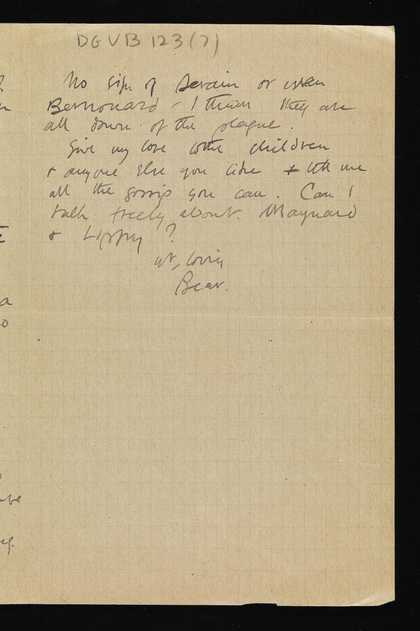 DGVB 123(7)
No sign of Derain or even
Bernouard - I think they are
all down of the plague.
Give my love to the children
& anyone else you like & tell me
all the gossip you can. Can I
talk freely about Maynard
& ?
yr, loving
Bear.
a